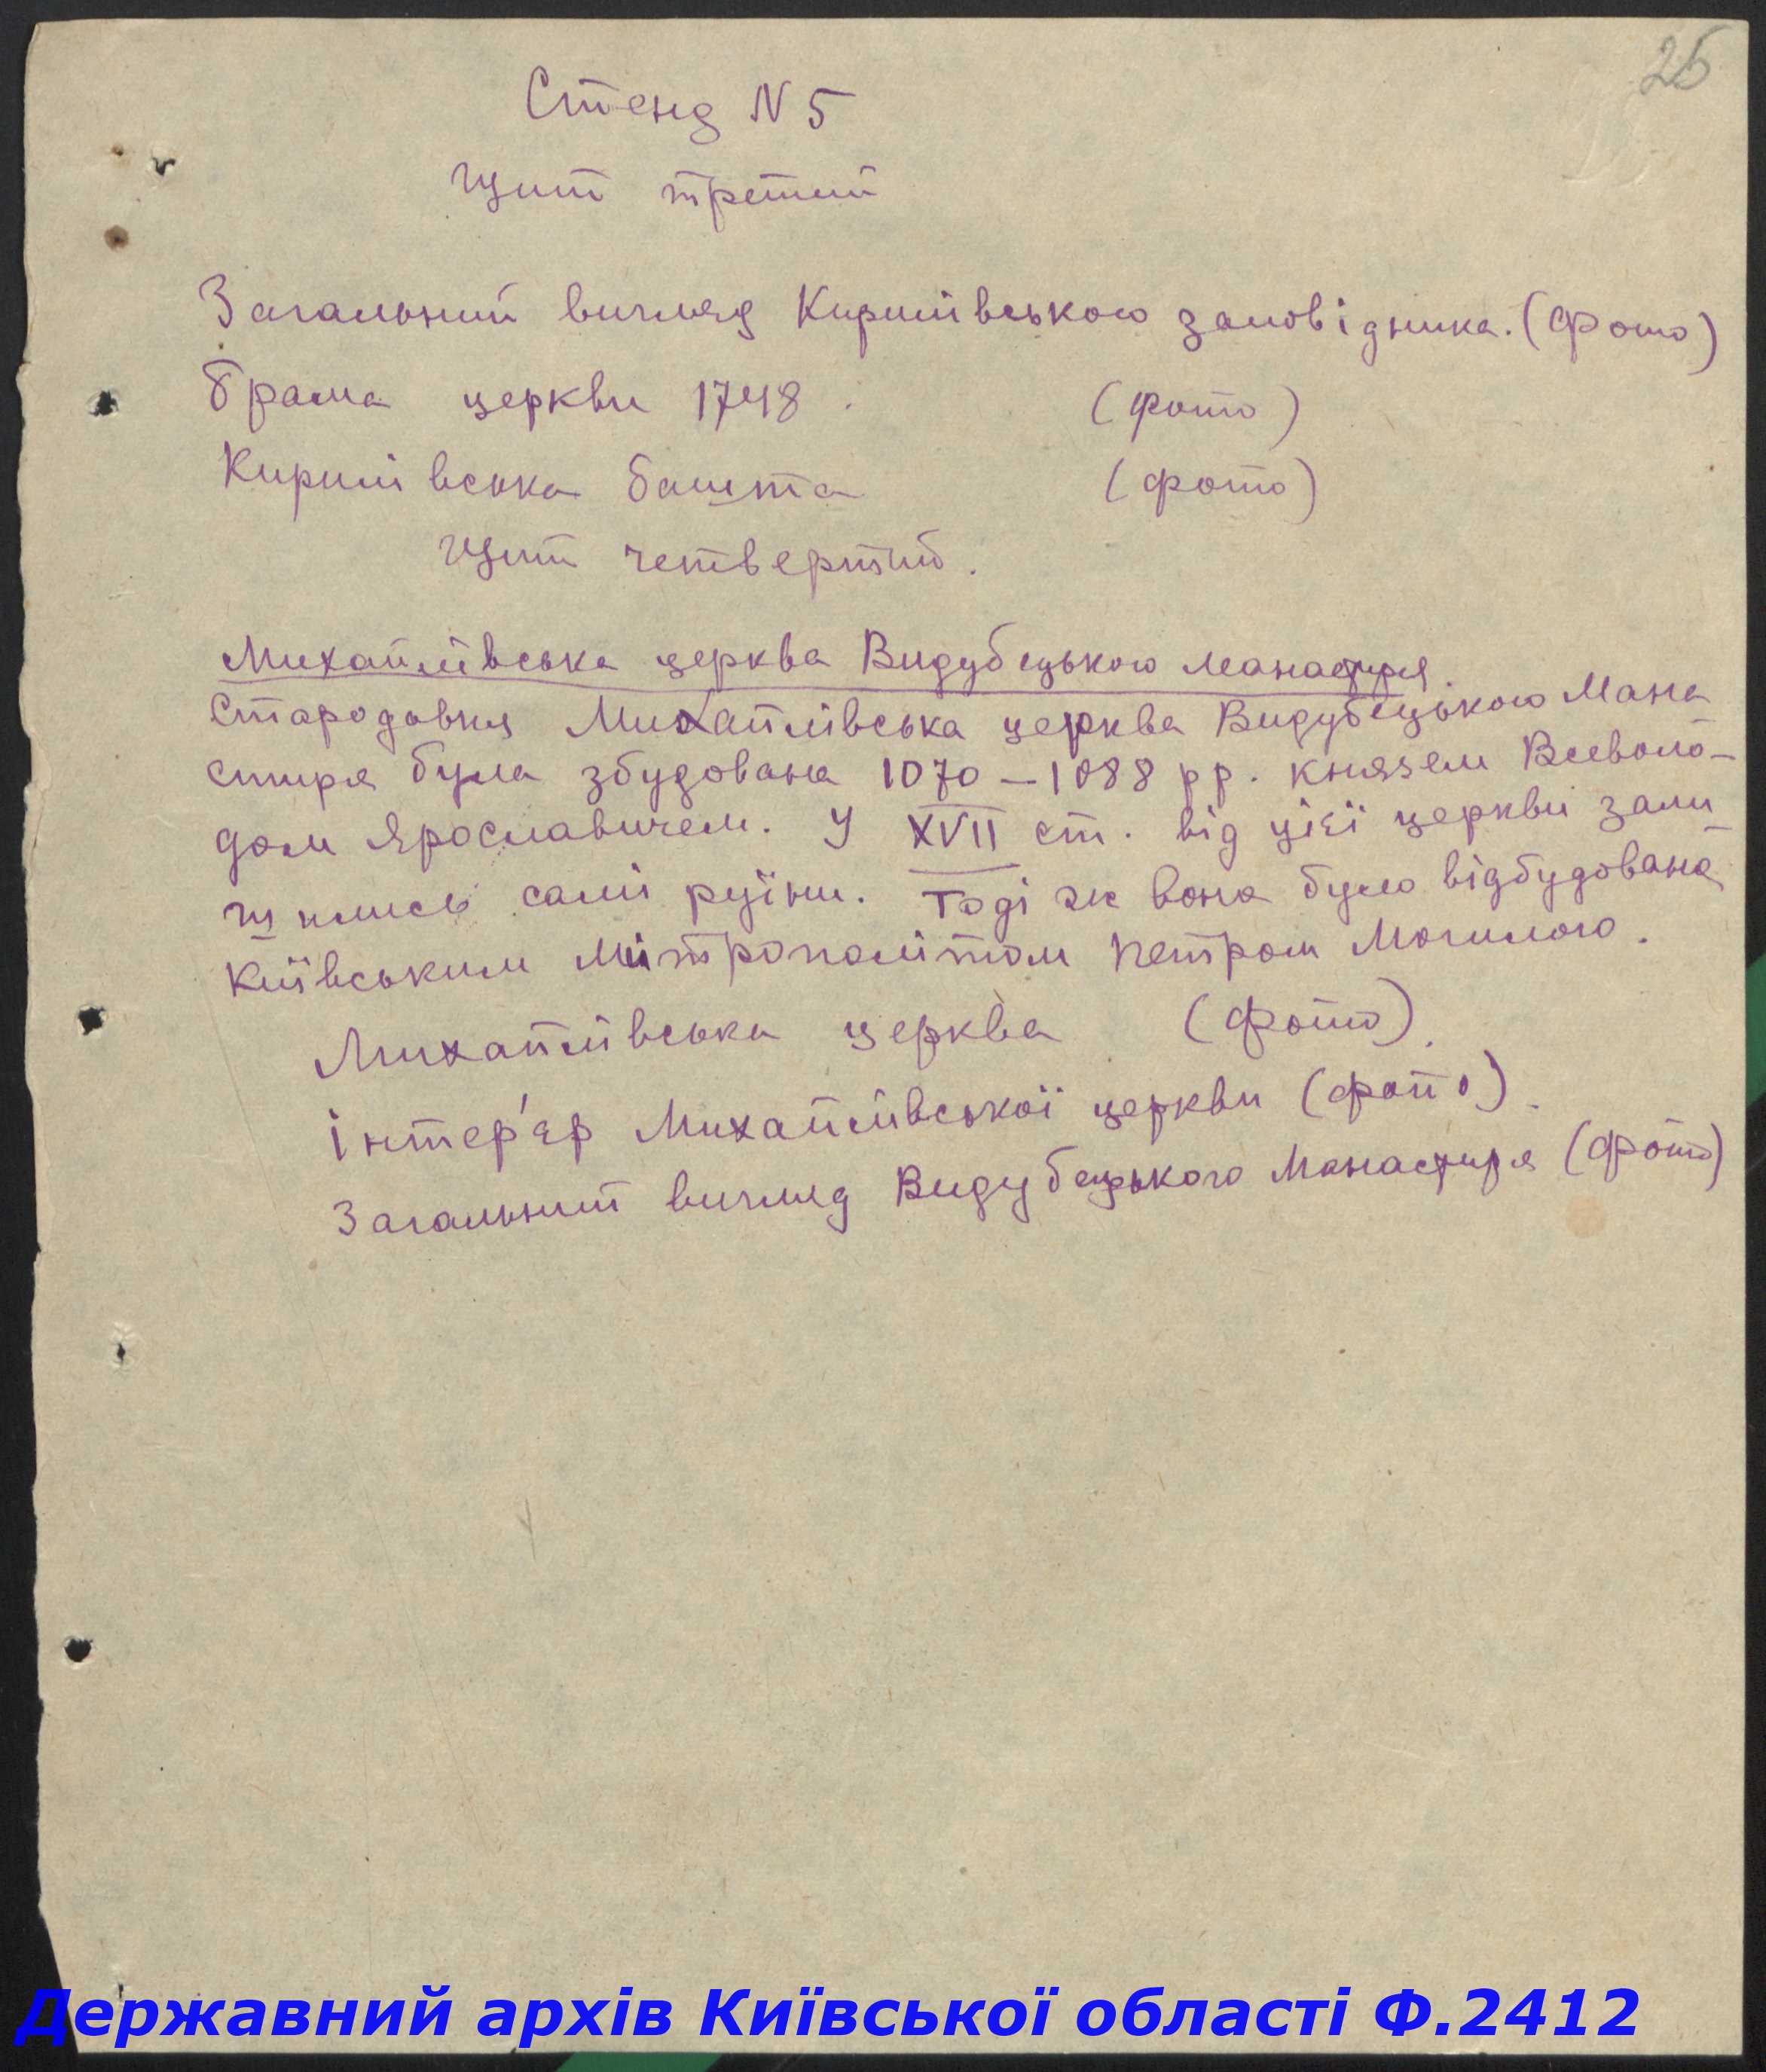 25
Стенд N 5
Щит третий
Загальний вигляд Кирилівського заповідника. (фото)
Брама церкви 1748. (фото)
Кирилівська башта (фото)
Щит четвертий.
Михайлівська церква Видубецького манастиря.
Стародавня Михайлівська церква Видубецького Мана
стиря була збудована 1070–1088 рр. князем Всеволо-
дом Ярославичем. У XVII ст. від цієї церкви зали
шились самі руїни. Тоді ж вона було відбудована
Київським Мітрополітом Петром Могилою.
Михайлівська церква (фото).
Інтер'єр Михайлівської церкви (фото).
Загальний вигляд Видубецького Манастиря (фото)
Державний архів Київської області Ф.2412